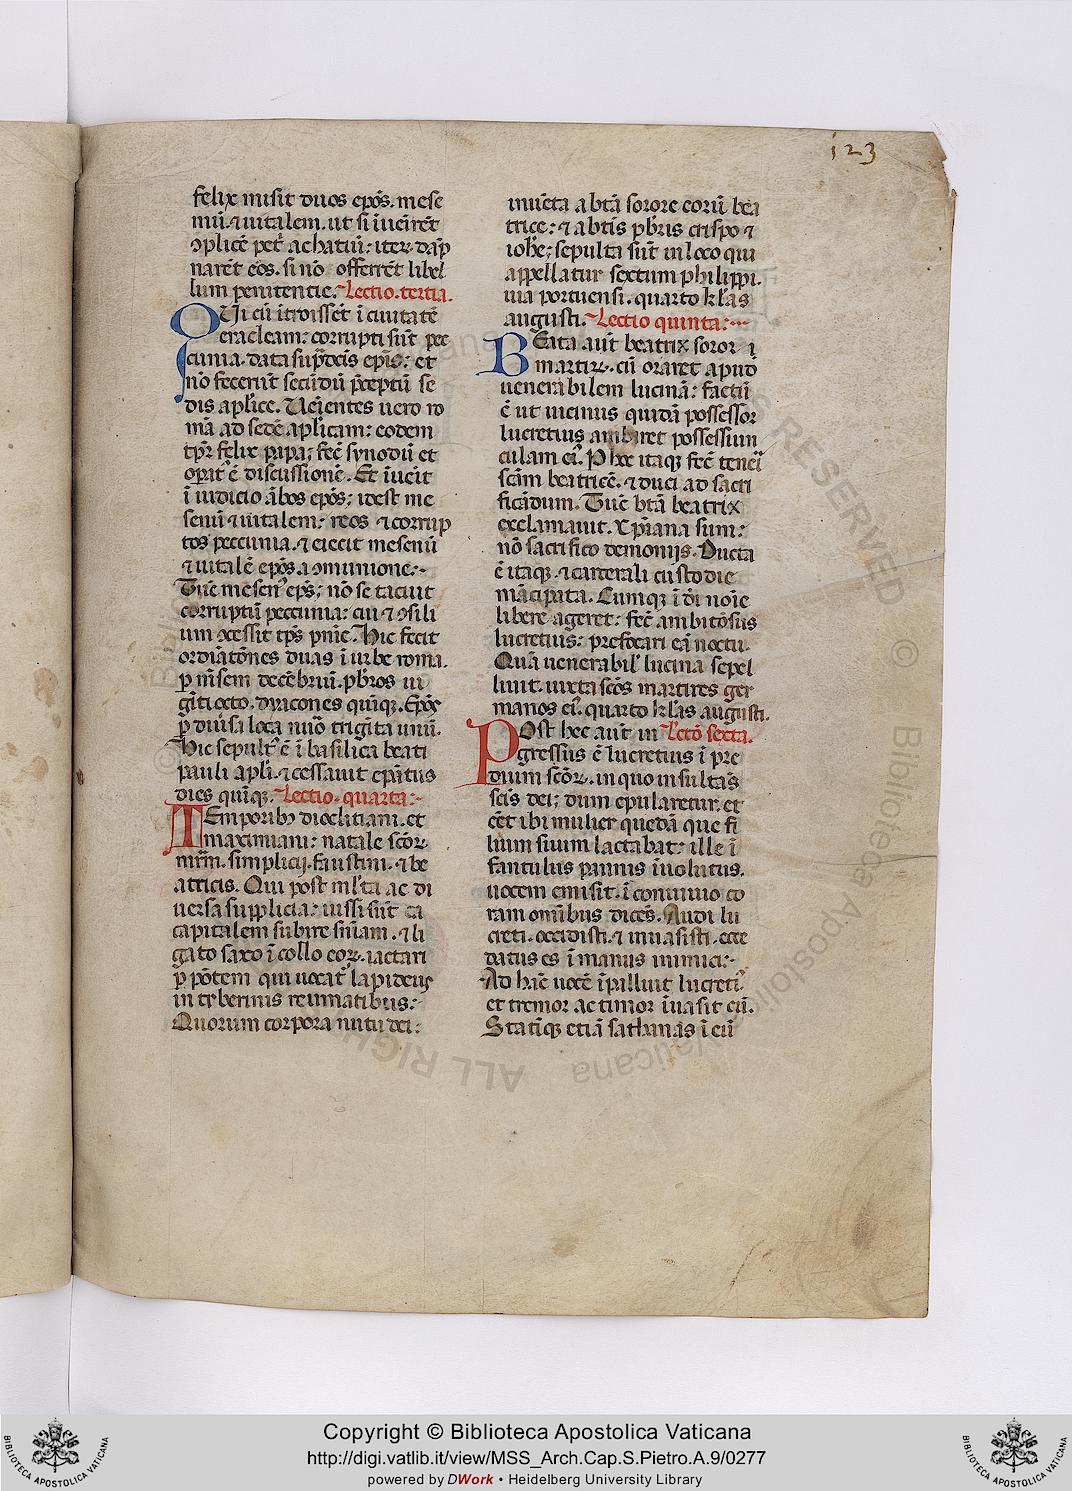 123
felix misit duos ep̄os. mese
nū. ⁊ uitalem. ut si īuēirēt
ꝯplicē pet͛ achatiū: iteꝝ dāp
narēt eos. si nō offerrēt libel
lum penitentie. Lectio. tertia.
QUi cū ītroissēt ī ciuitatē
eracleam: corrupti sūt pec
cunia. data sup̄dcīs ep̄is: et
nō fecerūt secūdū p̄ceptū se
dis apl̄ice. Ueīentes uero ro
mā ad sedē apl̄icam: eodem
tp̄r felix papa; fec̄ synodū et
op̄at͛ ē discussionē. Et īueīt
ī iudicio ābos ep̄os; idest me
senū ⁊ uitalem: reos ⁊ corrup
tos peccunia. ⁊ eiecit mesenū
⁊ uitalē ep̄os. a ꝯmunione:-
Tūc mesen͛ ep̄s; nō se tacuit
corruptū peccunia: cui ⁊ ꝯsili
um ꝯcessit tp̄s pn̄ie. Hic fecit
ordīatōnes duas ī urbe roma.
p̱ m̄sem decēbriū. p̄bros ui
gīti octo. diacones quīqꝫ. Ep̄os
p̱ diūsa loca nūo trigīta unū.
Hic sepult͛ ē ī basilica beati
pauli apl̄i. ⁊ cessauit ep̄atus
dies quīqꝫ. Lectio. quarta:-
TEmporibꝫ dioclitiani. et
maximiani: natale scōꝝ
mr̄m. simplicij. faustini. ⁊ be
atricis. Qui post ml̄ta ac di
uersa supplicia: iussi sūt ca
capitalem subire sn̄iam. ⁊ li
gato saxo ī collo eoꝝ. iactari
p̱ pōtem qui uocat͛ lapideus
in tyberinis reumatibus:-
Quorum corpora nutu dei:
inuēta a btā sorore eorū bea
trice: ⁊ a btīs p̄bris crispo ⁊
ioh̄e; sepulta sūt in loco qui
appellatur sextum philippi.
uia portuensi. quarto kl̄as
augusti. Lectio quinta:-
BEata aut̄ beatrix soror ī
martiꝝ. cū oraret apud
uenerabilem lucinā: factū
ē ut uicinus quidā possessor
lucretius ambiret possessiun
culam ei͛. P hoc itaqꝫ fec̄ teneri
scām beatricē. ⁊ duci ad sacri
ficādum. Tūc btā beatrix
exclamauit. Xp̄iana sum:
nō sacrifico demoniis. Ducta
ē itaqꝫ. ⁊ carcerali custodie
mācipata. Cumqꝫ ī dī noīe
libere ageret: fec̄ ambitōsus
lucretius: prefocari eā noctu.
Quā uenerabil͛ lucina sepel
liuit. iuxta scōs martires ger
manos ei͛. quarto kl̄as augusti.
POst hec aut̄ in Lectō sexta.
gressus ē lucretius ī pre
dium scōꝝ. in quo insultās
scīs dei; dum epularetur. et
eēt ibi mulier quedā que fi
lium suum lactabat: ille ī
fantulus pannis īuolutus.
uocem emisit. ī conuiuio co
ram omībus dicēs. Audi lu
creti. occidisti. ⁊ inuasisti. ecce
datus es ī manus inimici:-
Ad hāc uocē īpalluit lucreti͛.
et tremor ac timor īuasit eū.
Statīqꝫ etiā sathanas ī eū
Copyright © Biblioteca Apostolica Vaticana
http://digi.vatlib.it/view/MSS_Arch.Cap.S.Pietro.A.9/0277
powered by DWork • Heidelberg University Library